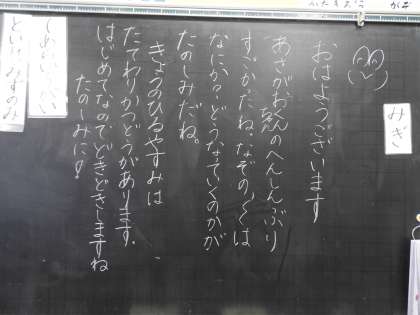 みぎ
おはようございます
あさがおくんのへんしんぶり
ちゃん
すごかったね。なぞの は
なにか？どうなっていくのかが
たのしみだね。
きょうのひるやすみは
たてわりかつどうがあります。
はじめてなのでどきどきしますね
たのしみに！
といれ みずのみ